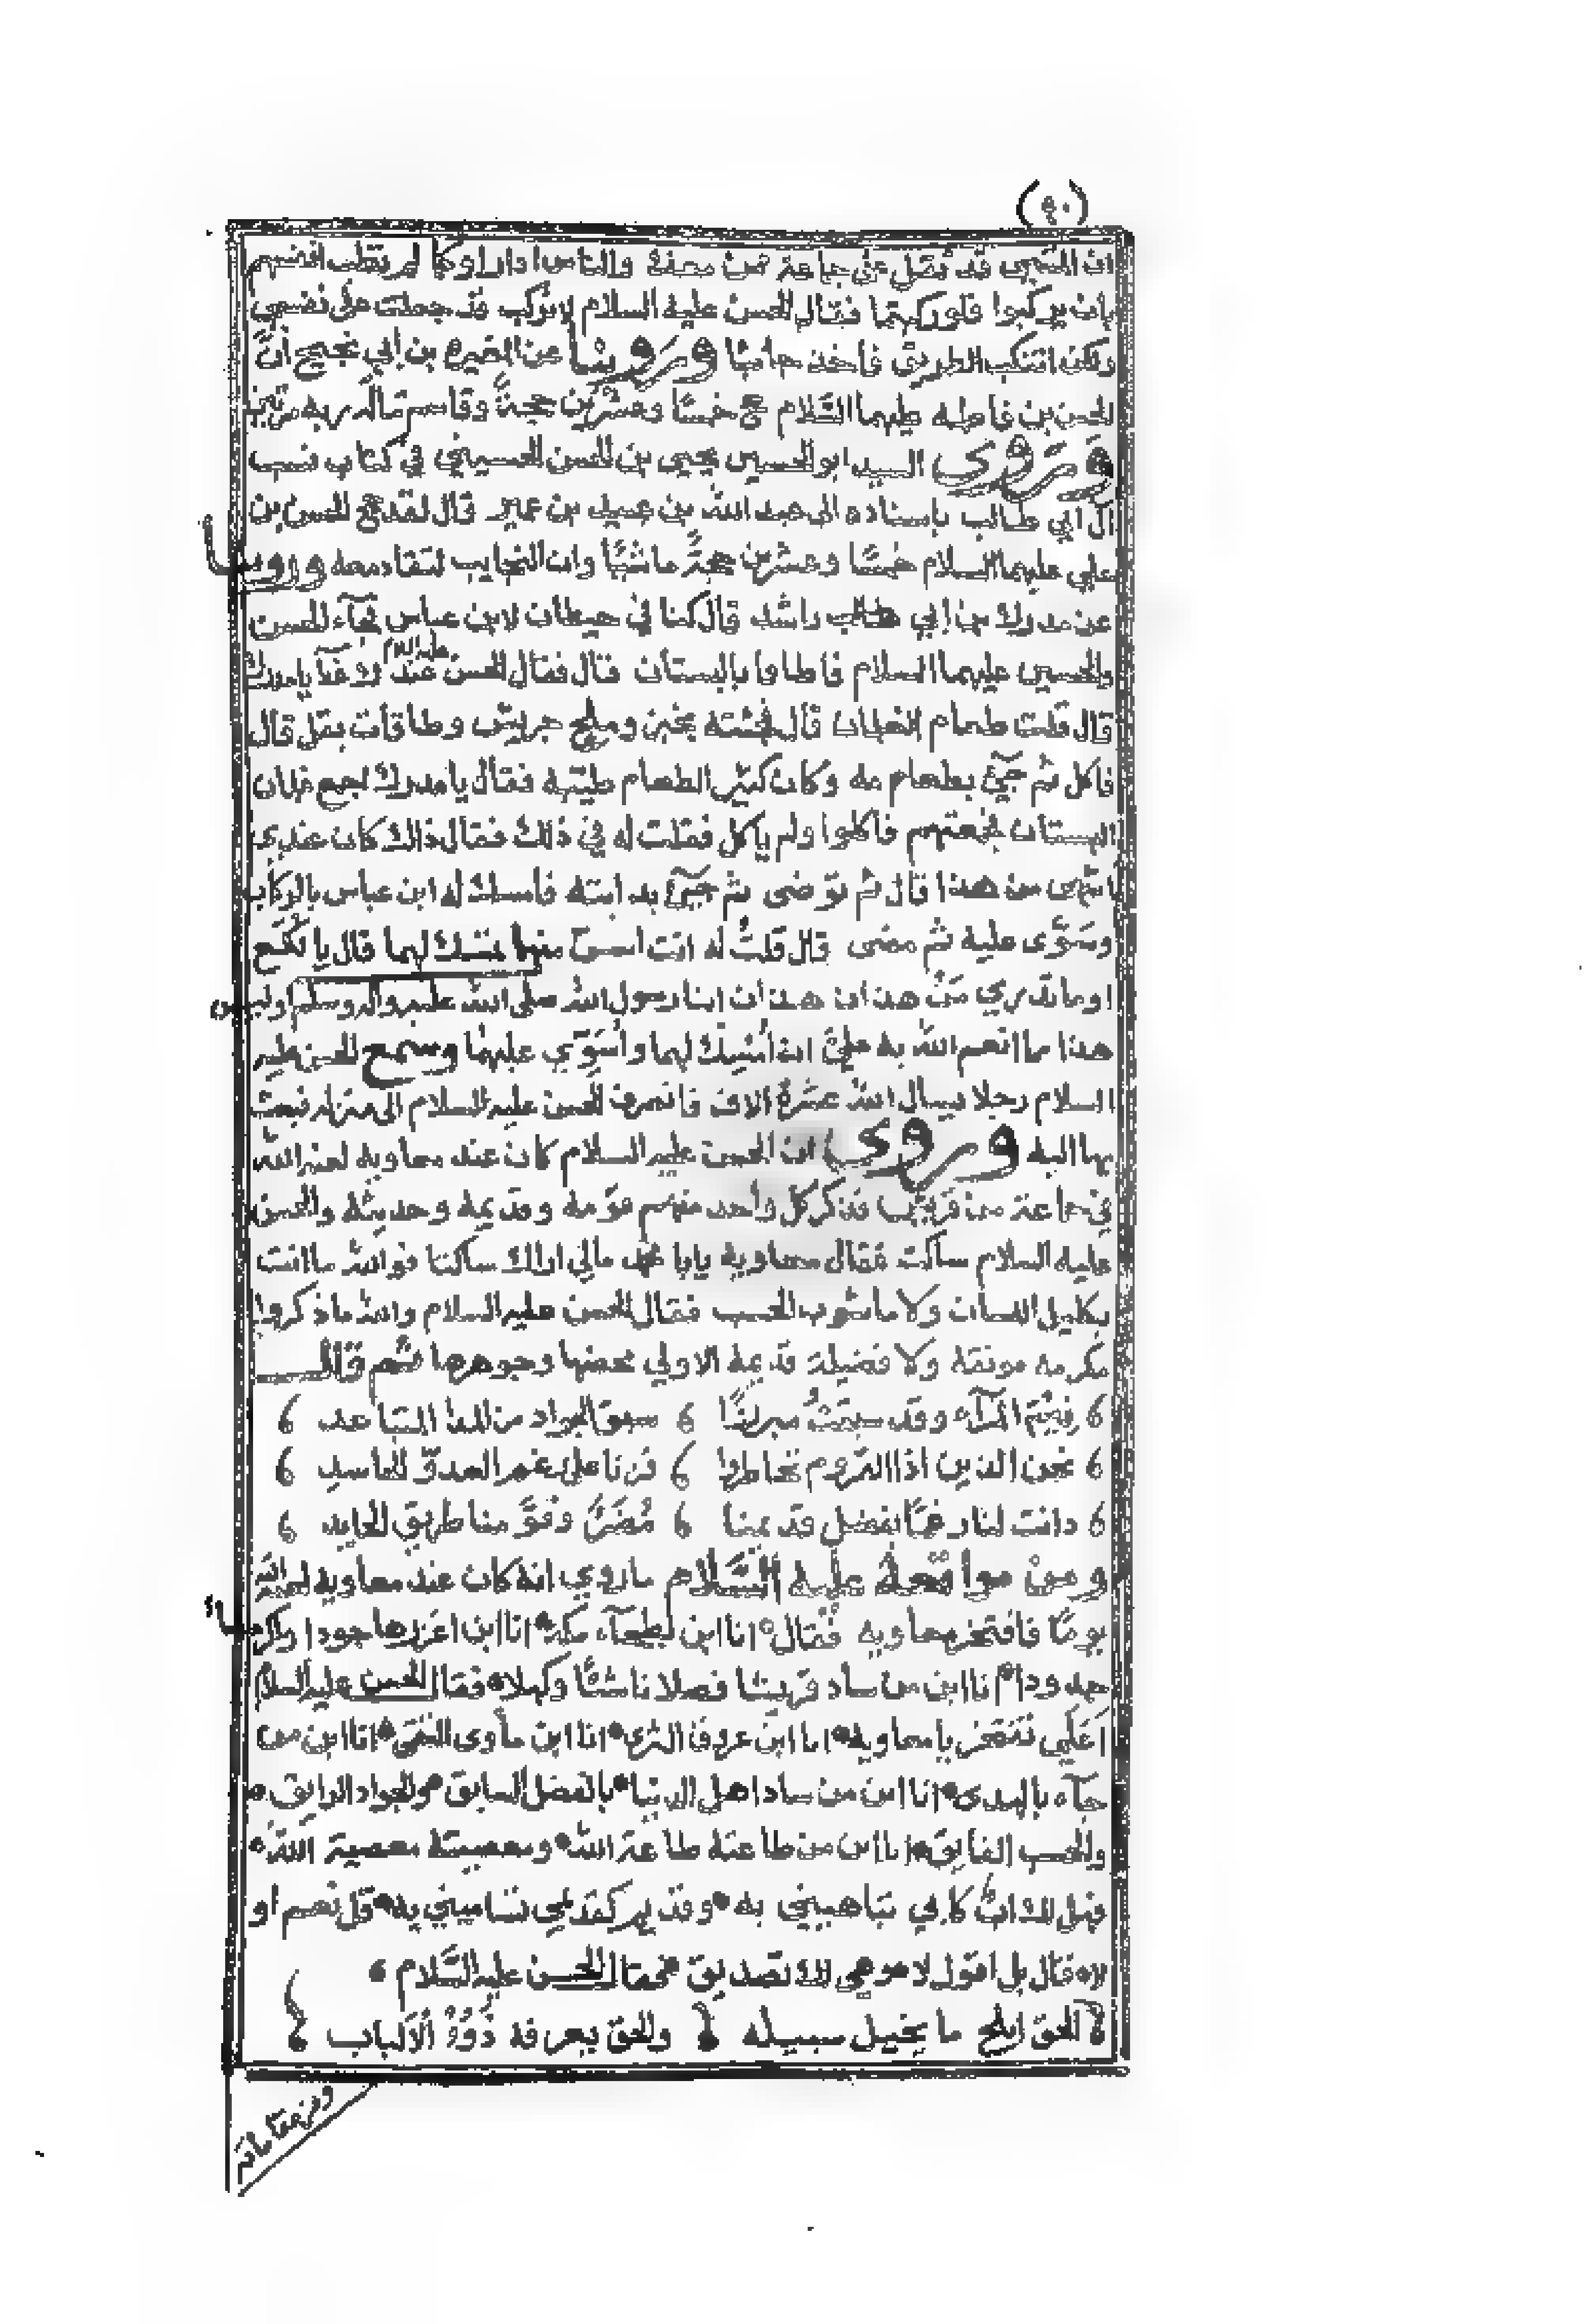 (٩٠)
ان المشي قد ثقل على جماعة ممن معنا والناس اذا راوكما لم تطب انفسهم
بان يركبوا فلو ركبتما فقال الحسن عليه السلام لا نركب قد جعلت على نفسي
ولكن اتنكب الطريق فاخذ جانبا وروينا عن المغيرة بن ابي نجيح ان
الحسن بن فاطمه عليهما السلام حج خمسا وعشرين حجة وقاسم ماله ربه مرتين
وروى السيد ابو الحسين يحيى بن الحسن الحسيني في كتاب نسب
ال ابي طالب باسناده الى عبد الله بن عبيد بن عمير قال لقد حج الحسن بن
علي عليهما السلام خمسا وعشرين حجة ماشيا وان النجايب لتقاد معه وروينا
عن مدرك بن ابي راشد قال كنا في حيطان لابن عباس فجاء الحسن
والحسين عليهما السلام فاطافا بالبستان قال فقال الحسن عليه السلام عندك غدآ يا مدرك
قال قلت طعام الغلمان قال فجئته بخبز وملح جريش وطاقات بقل قال
فاكل ثم جيئ بطعامه وكان كثير الطعام طيبه فقال يا مدرك اجمع غلمان
البستان فجمعتهم فاكلوا ولم ياكل فقلت له في ذلك فقال ذاك كان عندي
اشهى من هذا قال ثم توضى ثم جيئ بدابته فامسك له ابن عباس بالركاب
وسوى عليه ثم مضى قال قلت له انت اسن منهما تمسك لهما قال يا لكع
اوما تدري من هذان هذان ابنا رسول الله صلى الله عليه واله وسلم اوليس
هذا مما انعم الله به علي ان امسك لهما واسوي عليهما وسمع الحسن عليه
السلام رجلا يسال الله عشرة الاف فانصرف الحسن عليه السلام الى منزله فبعث
بها اليه وروى ان الحسن عليه السلام كان عند معاويه لعنه الله
في جماعة من قريش فذكر كل واحد منهم قومه وقديمه وحديثه والحسن
عليه السلام ساكت فقال معاوية يابا محمد مالي اراك ساكتا فوالله ما انت
بكليل اللسان ولا ماشوب الحسب فقال الحسن عليه السلام والله ما ذكروا
مكرمه مونقة ولا فضيلة قديمة الا ولي محضها وجوهرها ثم قال
فيم المرآء وقد سبقت مبرزا سبق الجواد من المدا المتباعد
نحن الذين اذا القروم تخاطروا فزنا على رغم العدو الحاسد
دانت لنا رغما بفضل قديمنا مضر وقوم منا طريق الحايد
ومن مواقفه عليه السلام ما روي انه كان عند معاوية لعنه الله
يوما فافتخر معاويه فقال انا ابن بطحآء مكة انا ابن اغزرها جودا واكرمها
جدودا انا ابن من ساد قريشا فضلا ناشئا وكهلا فقال الحسن عليه السلام
اعلي تفتخر يا معاوية انا ابن عروق الثرى انا ابن مأوى التقى انا ابن من
جآء بالهدى انا ابن من ساد اهل الدنيا بالفضل السابق والجواد الرايق
والحسب الفايق انا ابن من طاعته طاعة الله ومعصيته معصية الله
فهل لك اب كابي تباهيني به وقديم كقديمي تساميني به قل نعم او
لا فقال بل اقول لا وهي لك تصديق فقال الحسن عليه السلام
الحق ابلج ما يخيل سبيله والحق يعرفه ذوو الالباب
ومن مقاماته